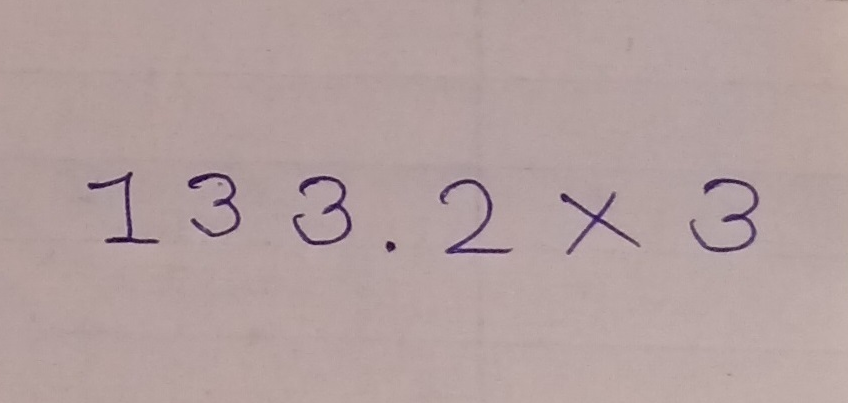 133.2 × 3